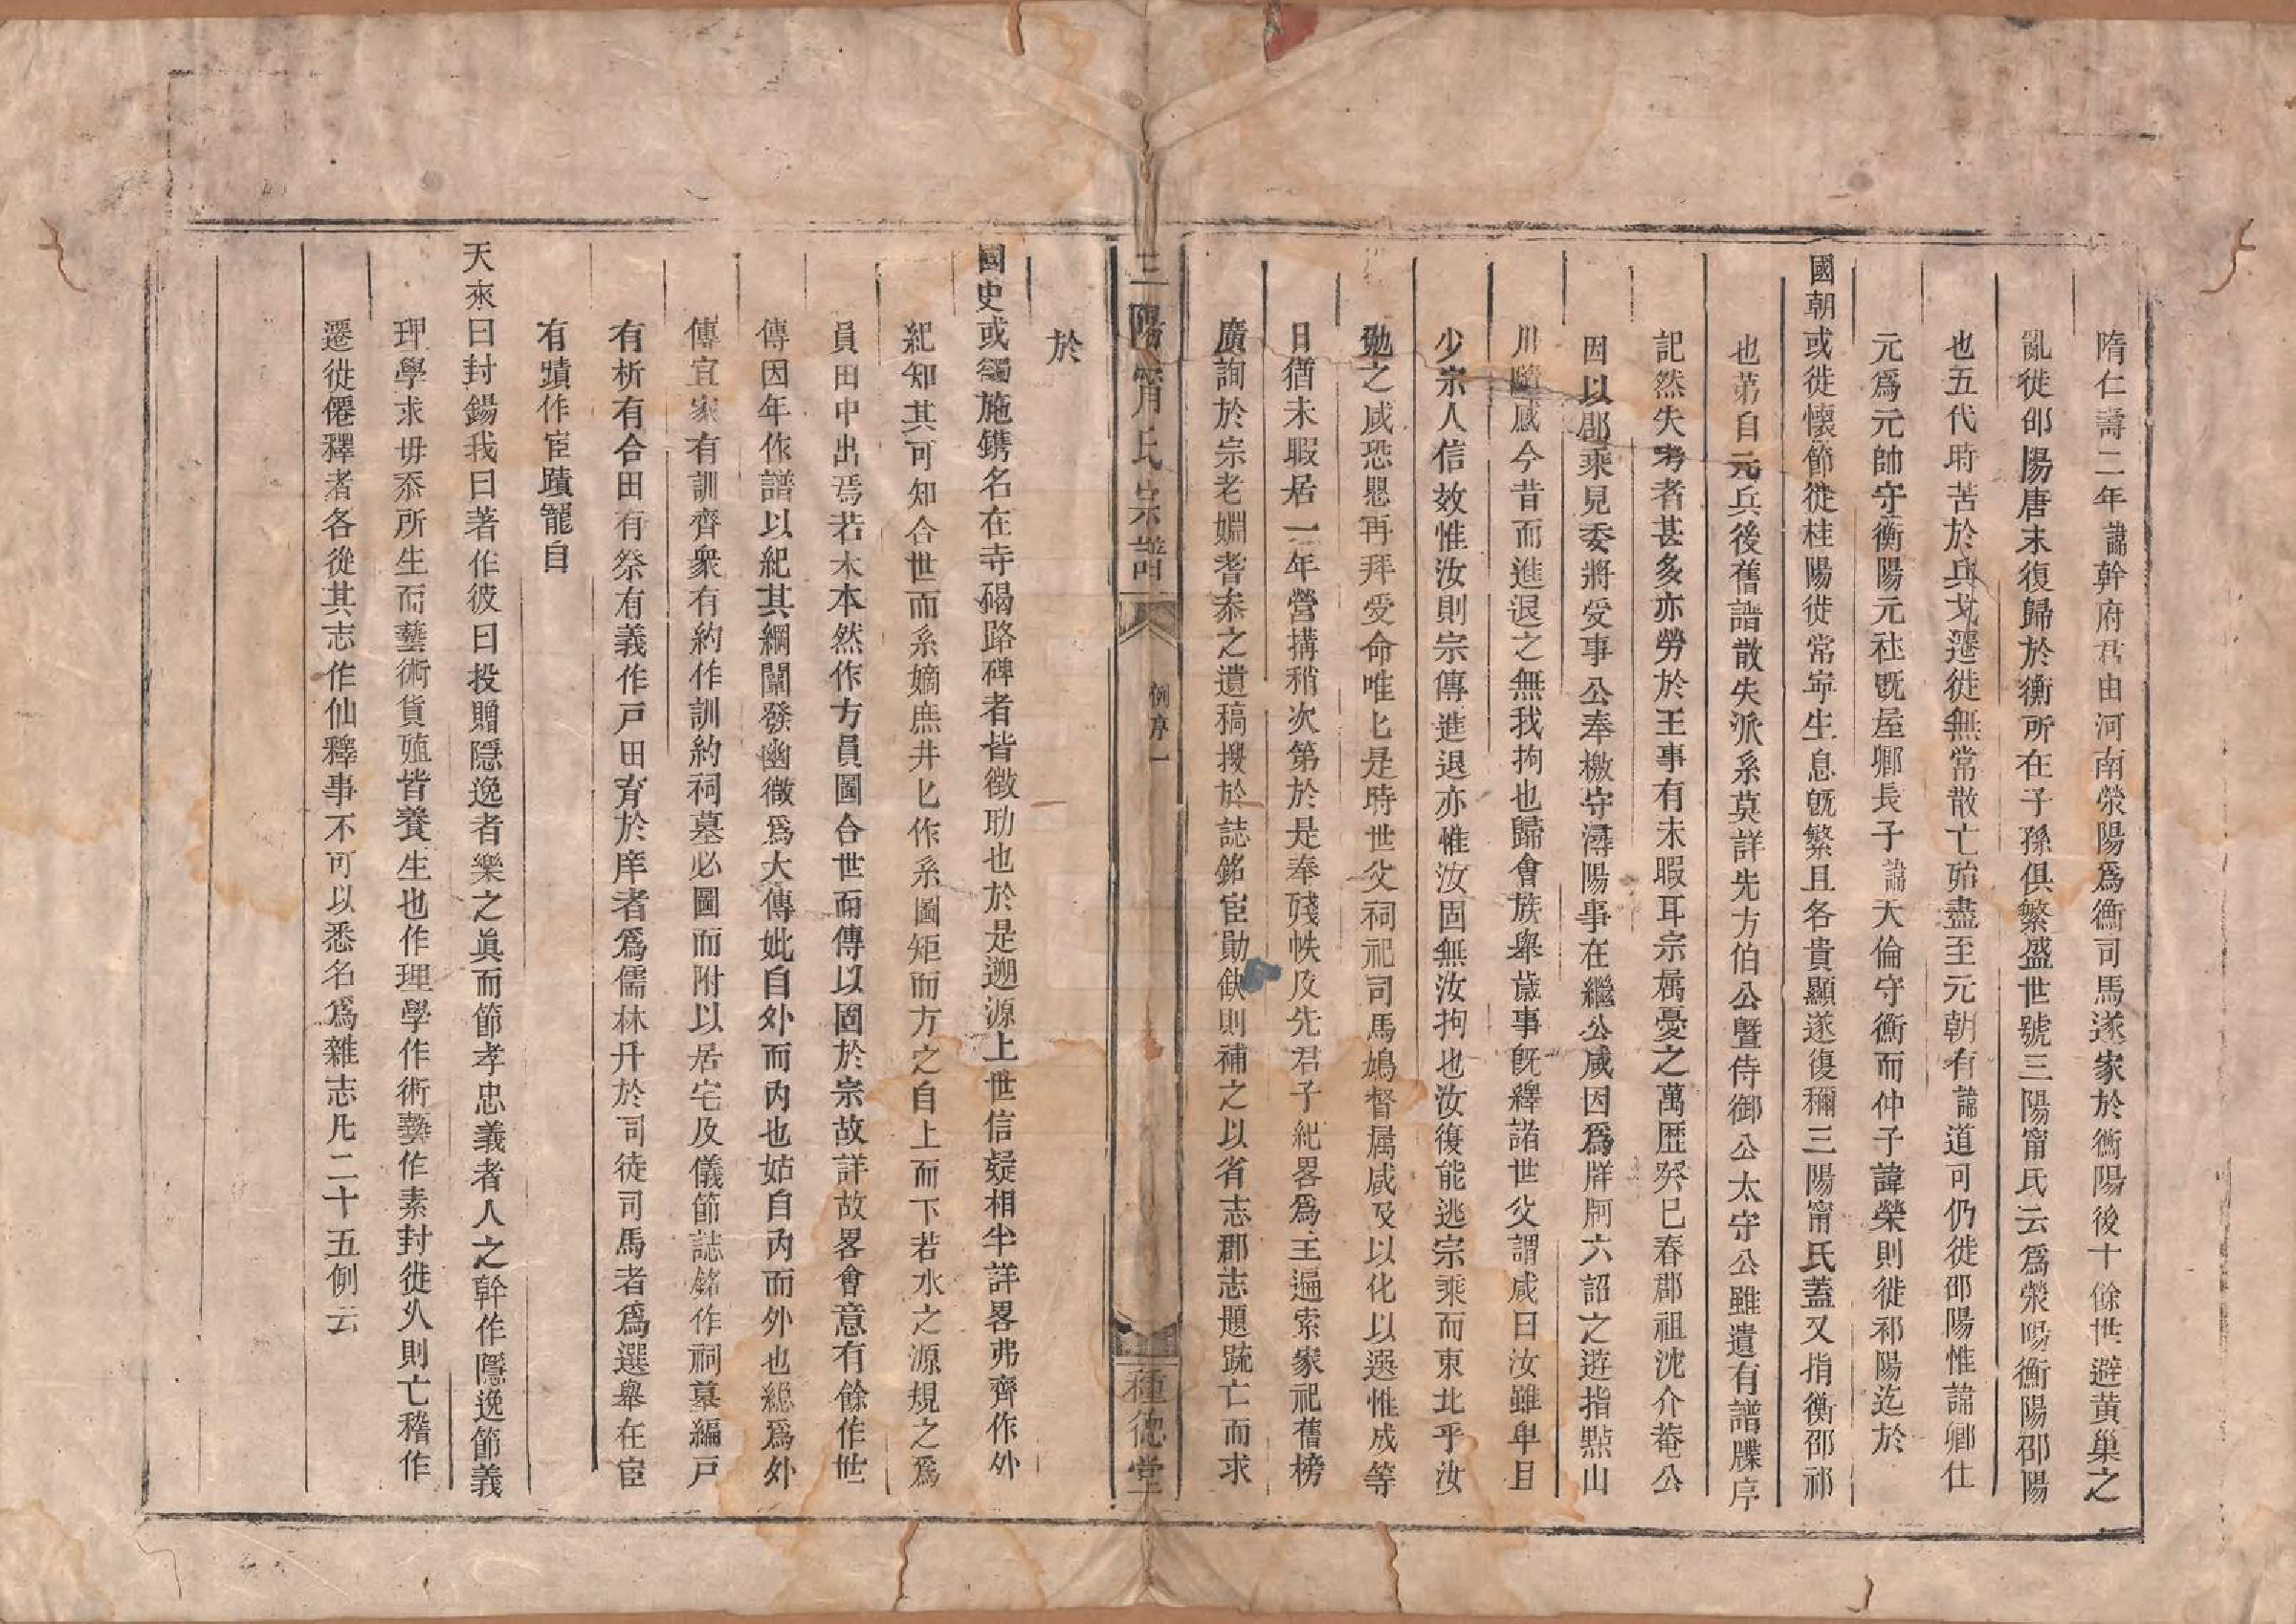 隋仁壽二年諱幹府君由河南滎陽爲衡司馬遂家於衡陽後十餘世避黃巢之
亂徙邵陽唐末復歸於衡所在子孫俱繁盛世號三陽甯氏云爲滎陽衡陽邵陽
也五代時苦於兵戈遷徙無常散亡殆盡至元朝有諱道可仍徙邵陽惟諱卿仕
元爲元帥守衡陽元社旣屋卿長子諱大倫守衡而仲子諱榮則徙祁陽迄於
國朝或徙懷節徙桂陽徙常寧生息旣繁且各貴顯遂復稱三陽甯氏蓋又指衡邵祁
也第自元兵後舊譜散失派系莫詳先方伯公曁侍御公太守公雖遺有譜牒序
記然失考者甚多亦勞於王事有未暇耳宗属憂之萬歷癸巳春郡祖沈介菴公
因以郡乘見委將受事公奉檄守潯陽事在繼公咸因爲牂牁六詔之遊指點山
川隨感今昔而進退之無我拘也歸會族舉歲事旣繹諸世父謂咸曰汝雖卑且
少宗人信效惟汝則宗傳進退亦惟汝固無汝拘也汝復能逃宗乘而東北乎汝
勉之咸恐思再拜受命唯匕是時世父祠祀司馬鳩督属咸及以化以選惟成等
日猶未暇居一年營搆稍次第於是奉殘帙及先君子紀畧爲主遍索家祀舊榜
廣詢於宗老婣耆泰之遺稿搜於誌銘宦勛缺則補之以省志郡志題䟽亡而求
三陽甯氏宗譜
例序一
種德堂
於
國史或獨施鐫名在寺碣路碑者皆徵助也於是遡源上世信疑相半詳畧弗齊作外
紀知其可知合世而系嫡庶井匕作系圖矩而方之自上而下若水之源規之爲
員田中出焉若木本然作方員圖合世而傳以固於宗故詳故畧會意有餘作世
傳因年作譜以紀其綱闡發幽微爲大傳妣自外而内也姑自内而外也總爲外
傳宜家有訓齊衆有約作訓約祠墓必圖而附以居宅及儀節誌銘作祠墓編戸
有析有合田有祭有義作戸田育於庠者爲儒林升於司徒司馬者爲選舉在宦
有蹟作宦蹟寵自
天來曰封錫我曰著作彼曰投贈隱逸者樂之眞而節孝忠義者人之幹作隱逸節義
理學求毋忝所生而藝術貨殖皆養生也作理學作術藝作素封徙久則亡稽作
遷徙僊釋者各從其志作仙釋事不可以悉名爲雜志凡二十五例云